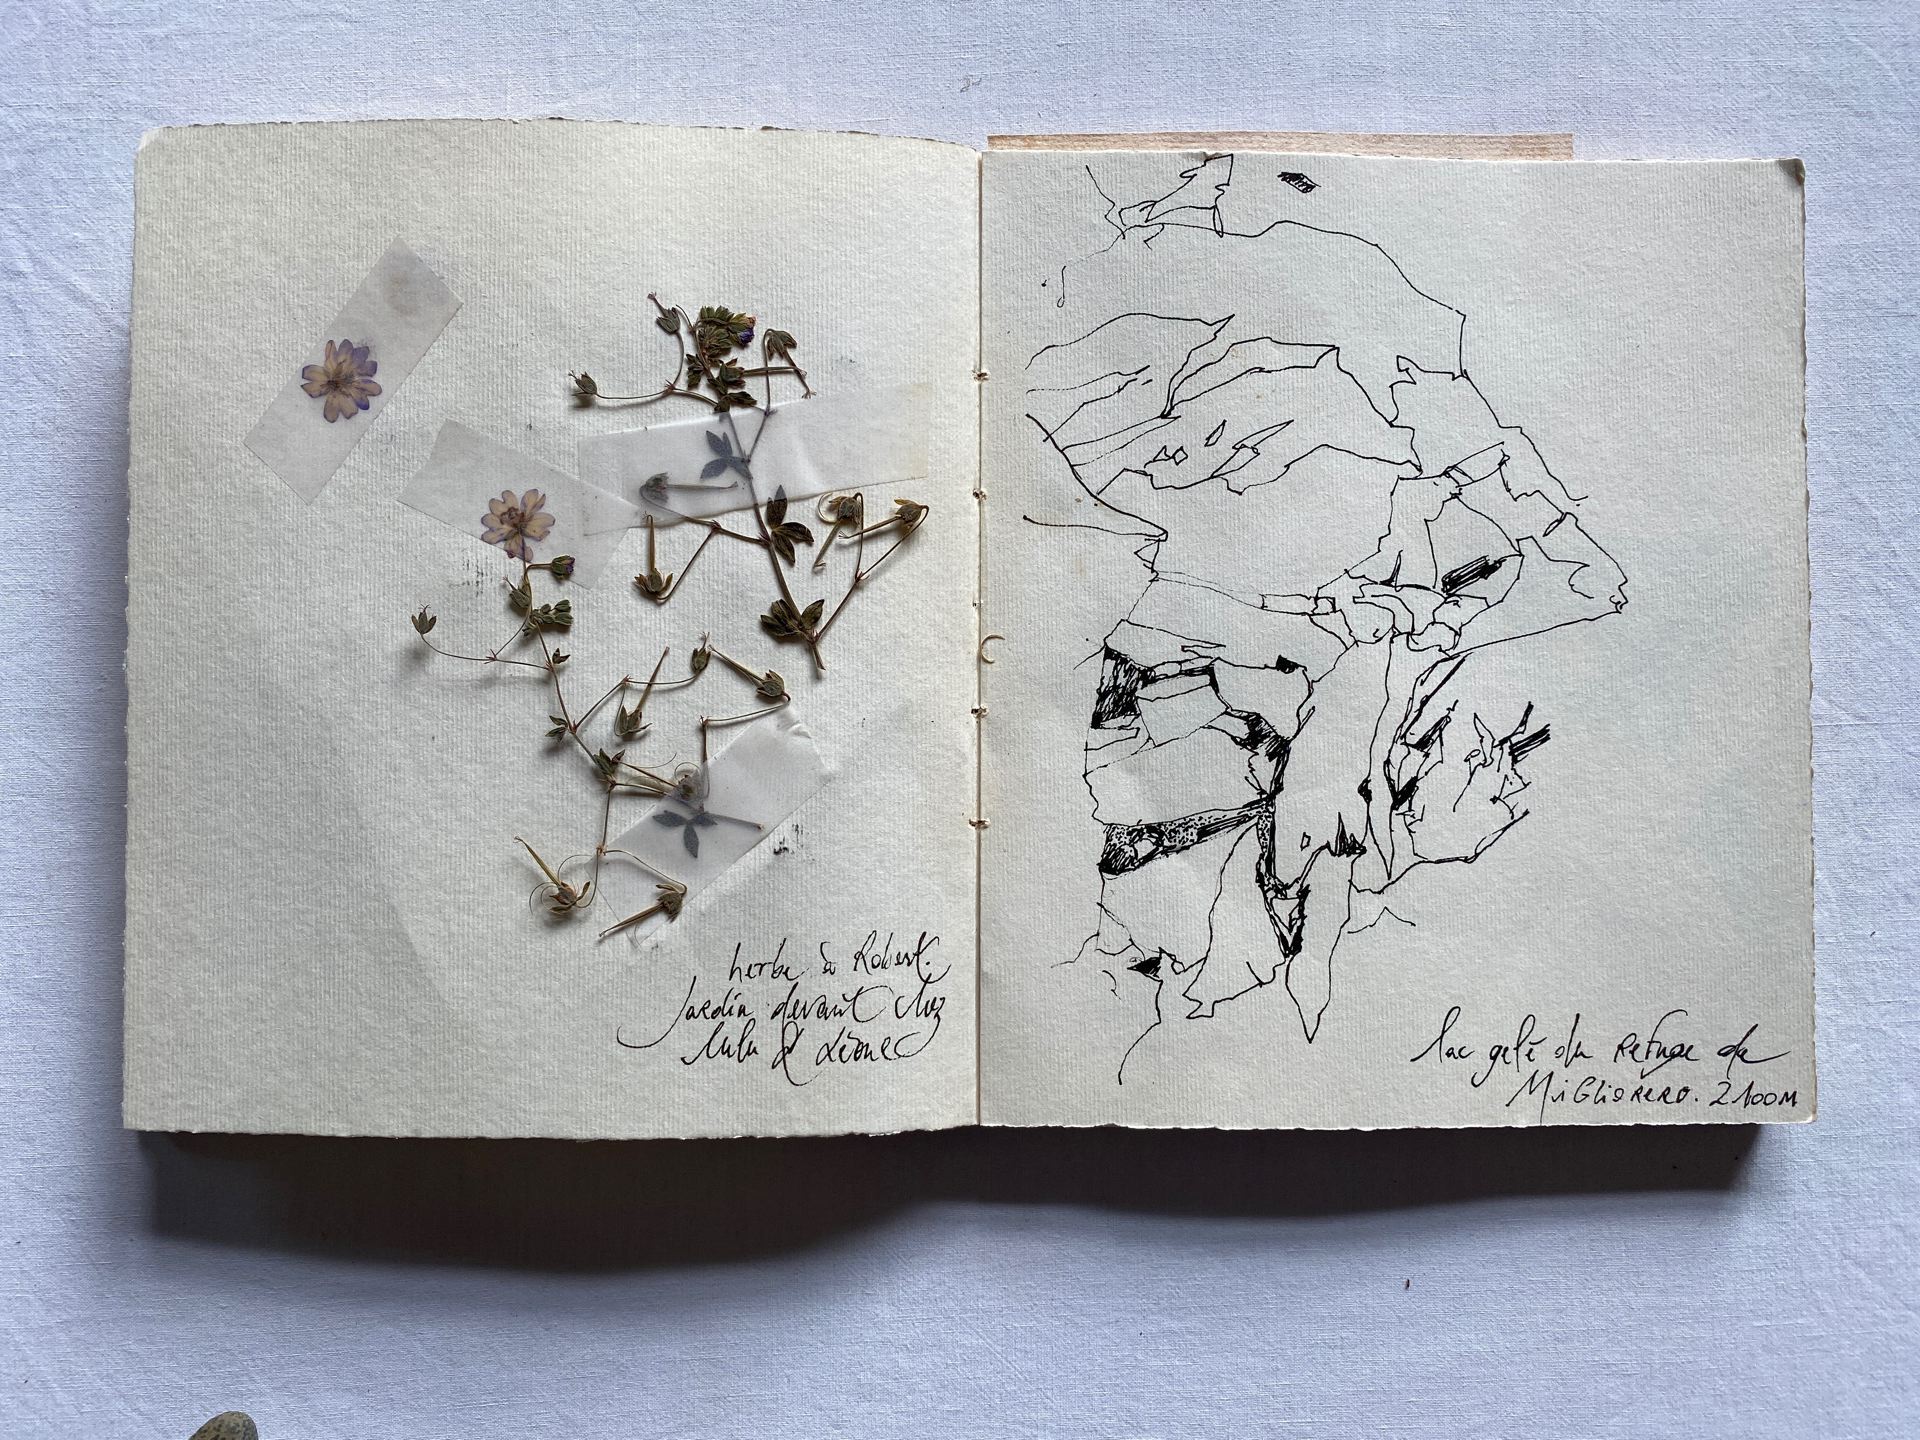 herbe à Robert.
Jardin devant chez
Lulu & Lionel
lac gelé du Refuge de
Migliorero. 2100m